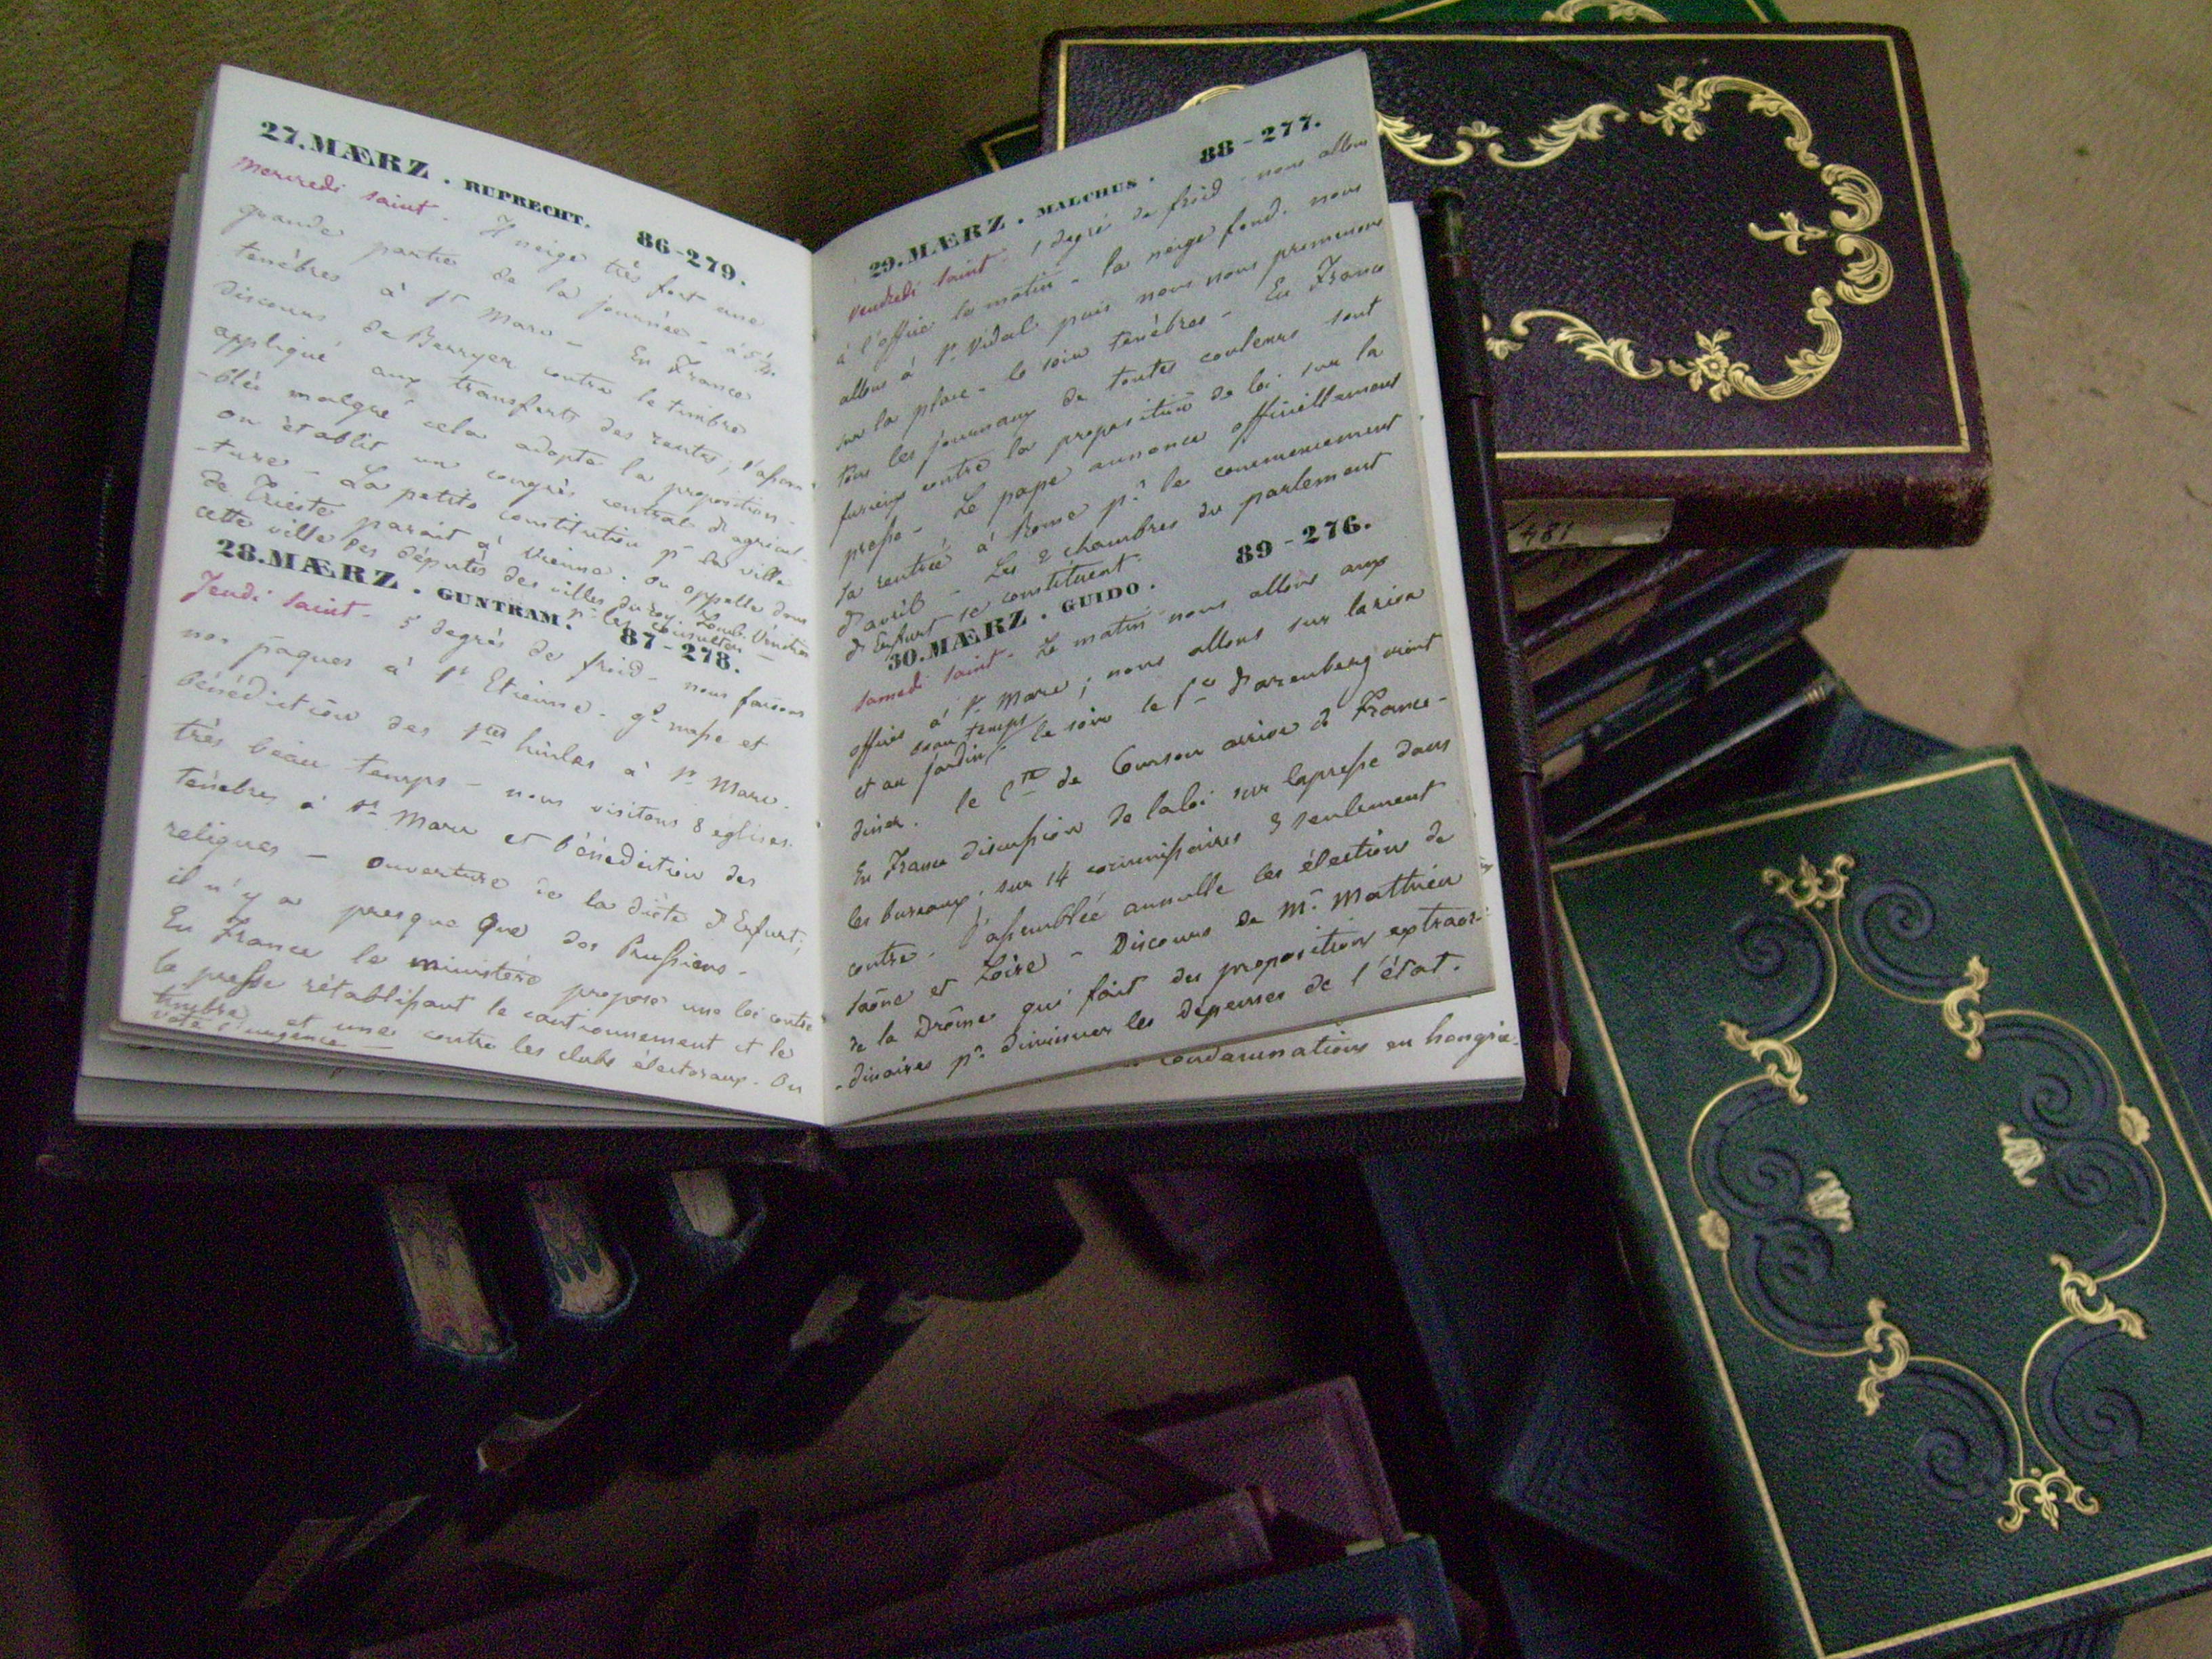 27. MÆRZ. RUPRECHT. 86-279.
mercredi saint. Il neige très fort une
grande partie de la journée - à 5 h 1/4
tenèbres à St Marc - En France
discours de Berryer contre le timbre
appliqué aux transferts des rentes; l'assem
-blée malgré cela adopte la proposition -
on établit un congrès central d'agricul
-ture - La petite constitution pr la ville
de Trieste parait à Vienne. on appelle dans
cette ville des députés des villes du roy. Lomb. Vénitien
pr les consulter -
28. MÆRZ. GUNTRAM. 87-278.
Jeudi saint - 5 degrès de froid - nous faisons
nos paques à St Etienne - gde messe et
bénédiction des stes huiles à St Marc.
très beau temps - nous visitons 8 églises.
tenèbres à St Marc et bénédiction des
reliques - ouverture de la diète d'Erfurt;
il n'y a presque que des Prussiens -
En France le ministère propose une loi contre
la presse rétablissant le cautionnement et le
timbre et une contre les clubs électoraux. On
vote l'urgence -
29. MÆRZ. MALCHUS. 88-277.
Vendredi saint 1 degré de froid - nous allons
à l'office le matin - la neige fond. nous
allons à St Vidal puis nous nous promenons
sur la place - le soir tenèbres - En France
tous les journaux de toutes couleurs sont
furieux contre la proposition de loi sur la
presse - Le pape annonce officiellement
sa rentrée à Rome pr le commencement
d'avril - Les 2 chambres du parlement
d'Erfurt se constituent.
30. MÆRZ. GUIDO. 89-276.
samedi saint - Le matin nous allons aux
offices à St Marc; nous allons sur la riva
beau temps
et au jardin, le soir le Pce d'arenberg vient
diner. le Cte de arrive de France -
En France discussion de la loi sur la presse dans
les bureaux; sur 14 commissaires 3 seulement
contre. l'assemblée annulle les élection de
Saône et Loire - Discours de Mr Mathieu
de la Drôme qui fait des propositions extraor-
-dinaires pr diminuer les dépenses de l'état.
condamnations en hongrie -
481